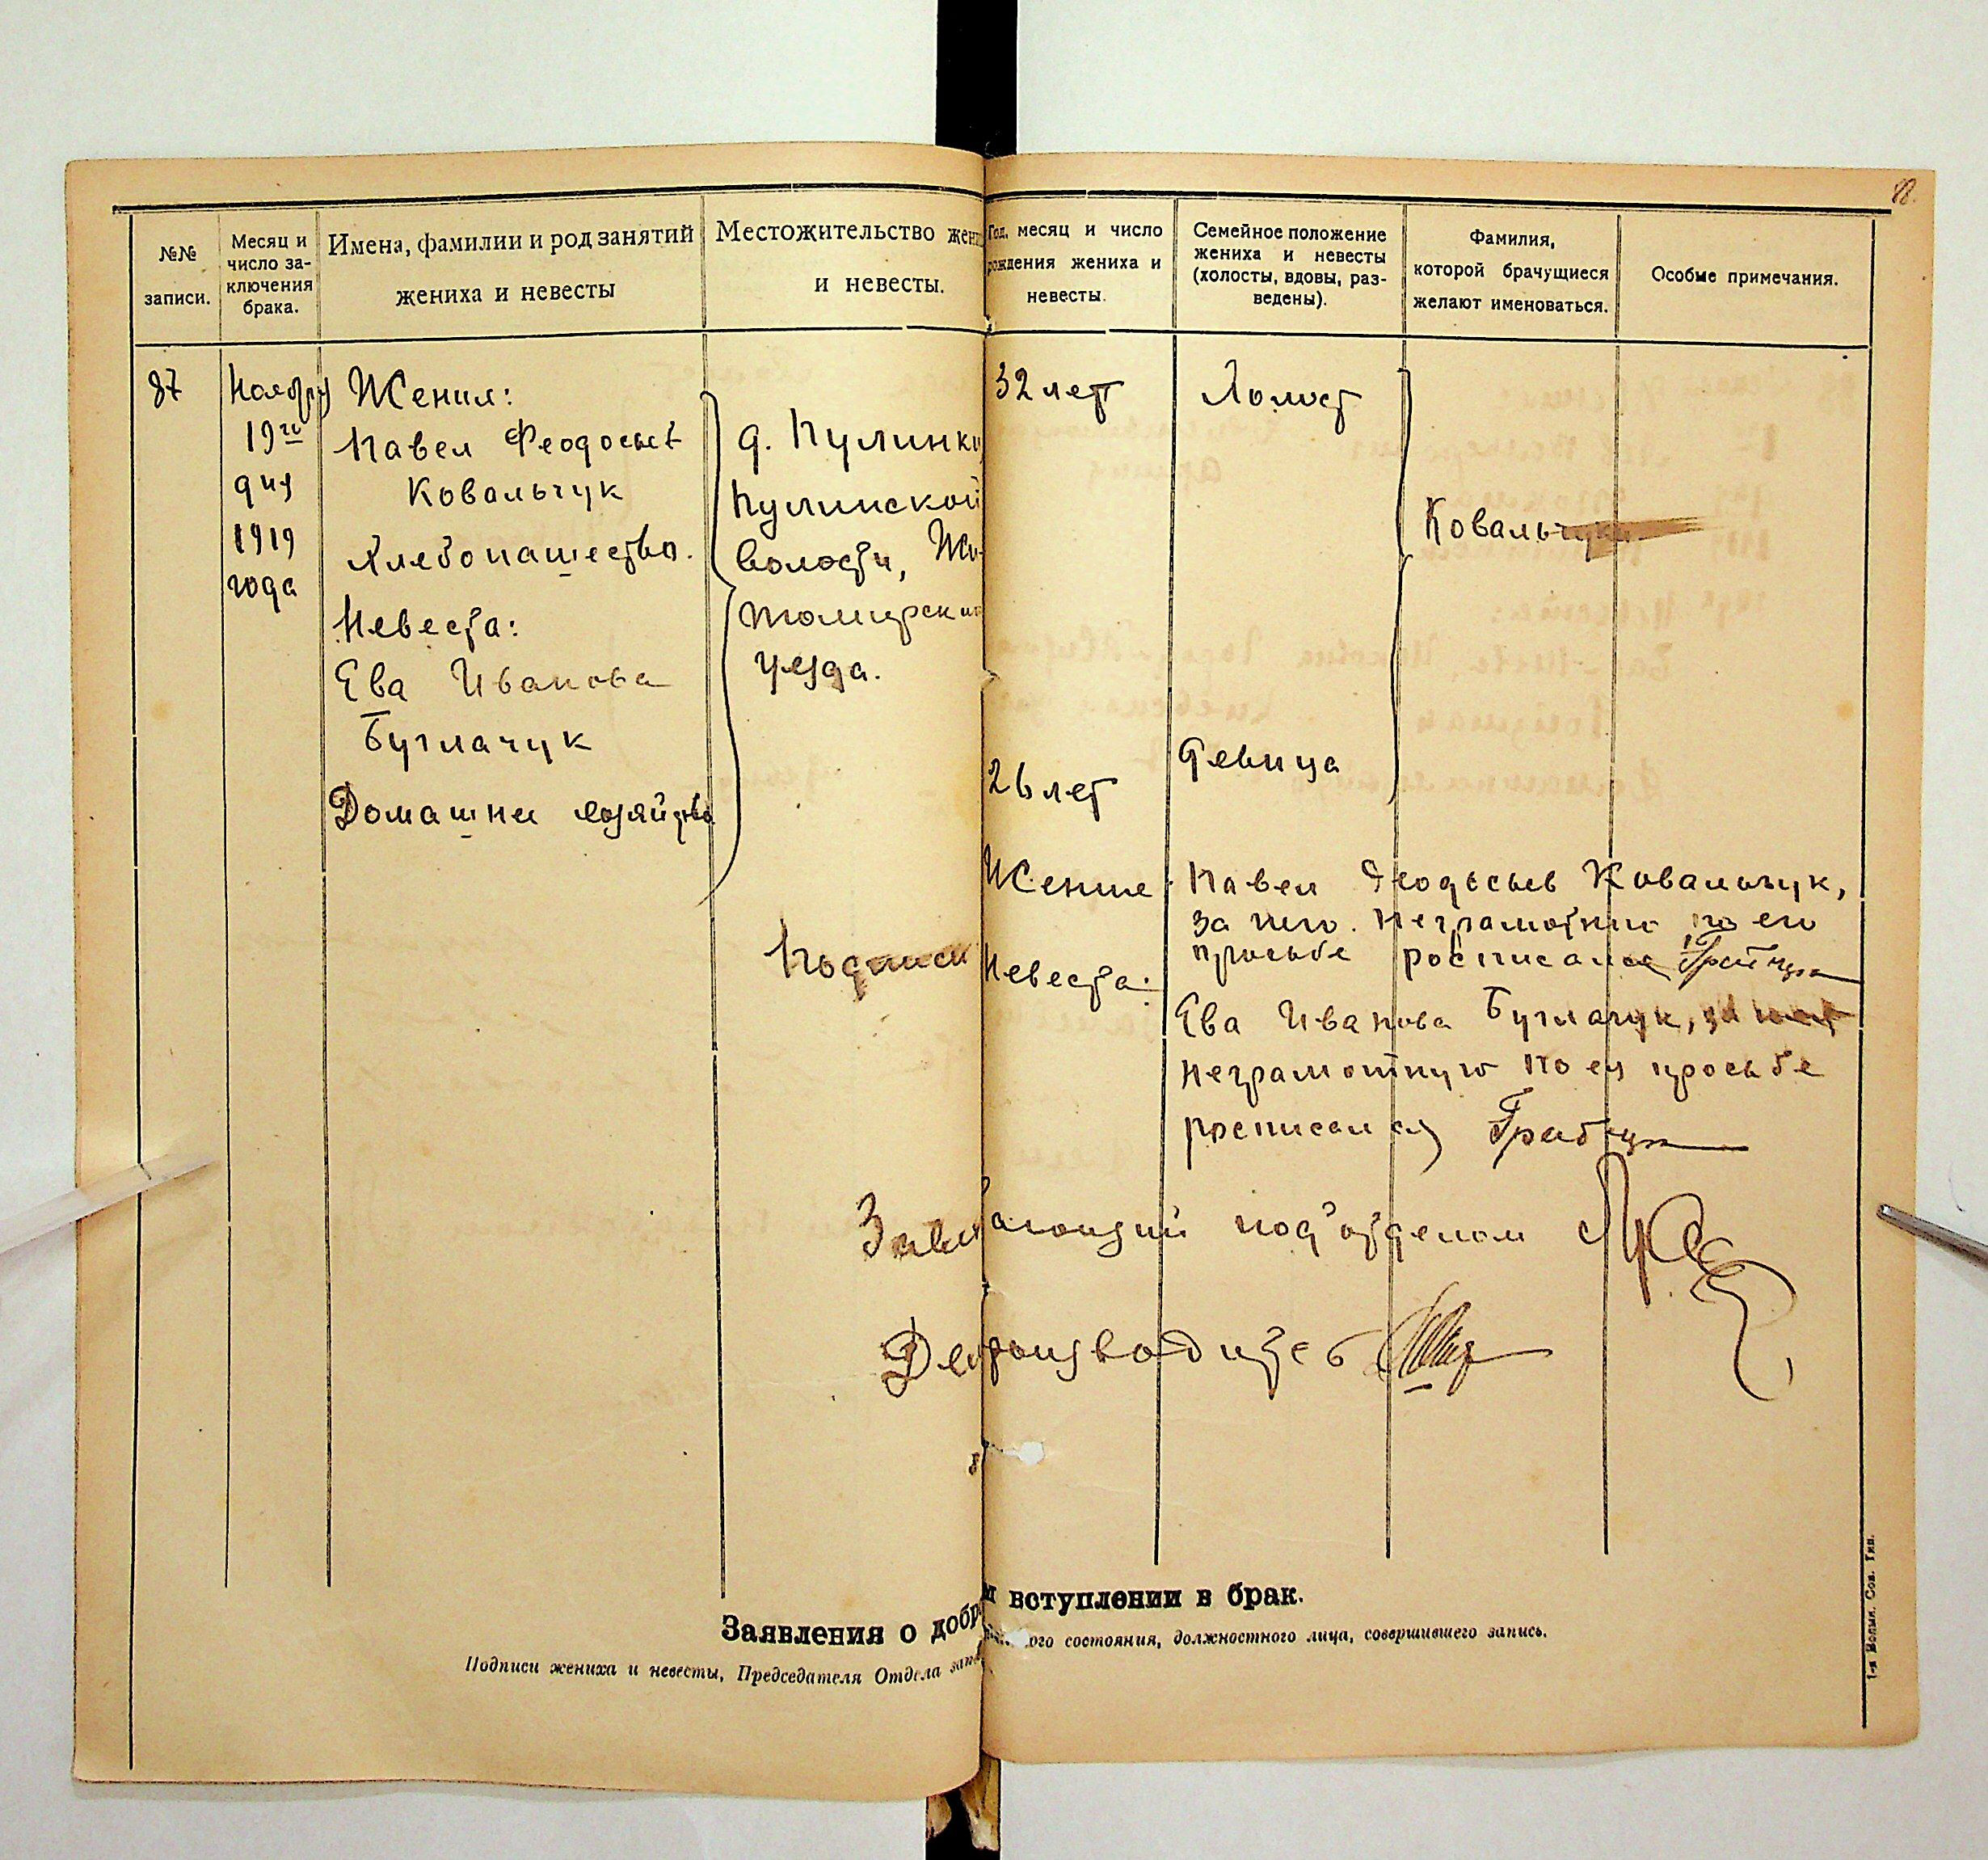 88.
№№ записи.
Месяц и число за-
ключения
брака.
Имена, фамилии и род занятий
жениха и невесты
Местожительство жени
и невесты.
Год, месяц и число
рождения жениха и
невесты.
Семейное положение
жениха и невесты
(холосты, вдовы, раз-
ведены).
Фамилия,
которой брачущиеся
желают именоваться.
Особые примечания.
87
Ноября
19го
дня
1919
года
Жених:
Павел Феодосьев
Ковальчук
Хлебопашество.
Невеста:
Ева Иванова
Буглачук
Домашнее хозяйство
д. Пулинки
Пулинской
волости, Жи-
томирского
уезда.
32 лет
26 лет
Холост
Девица
Ковальчук
Подписи
Жених: Павел Феодосьев Ковальчук,
за него неграмотного по его
просьбе росписался Грабчук
Невеста:
Ева Иванова Буглачук, за
неграмотную по ея просьбе
росписался Грабчук
Заведающий под'отделом
Делопроизводитель
Заявления о добр
и вступлении в брак.
Подписи жениха и невесты, Председателя Отдела запи
ого состояния, должностного лица, совершившего запись.
1-я Волын. Сов. Тип.